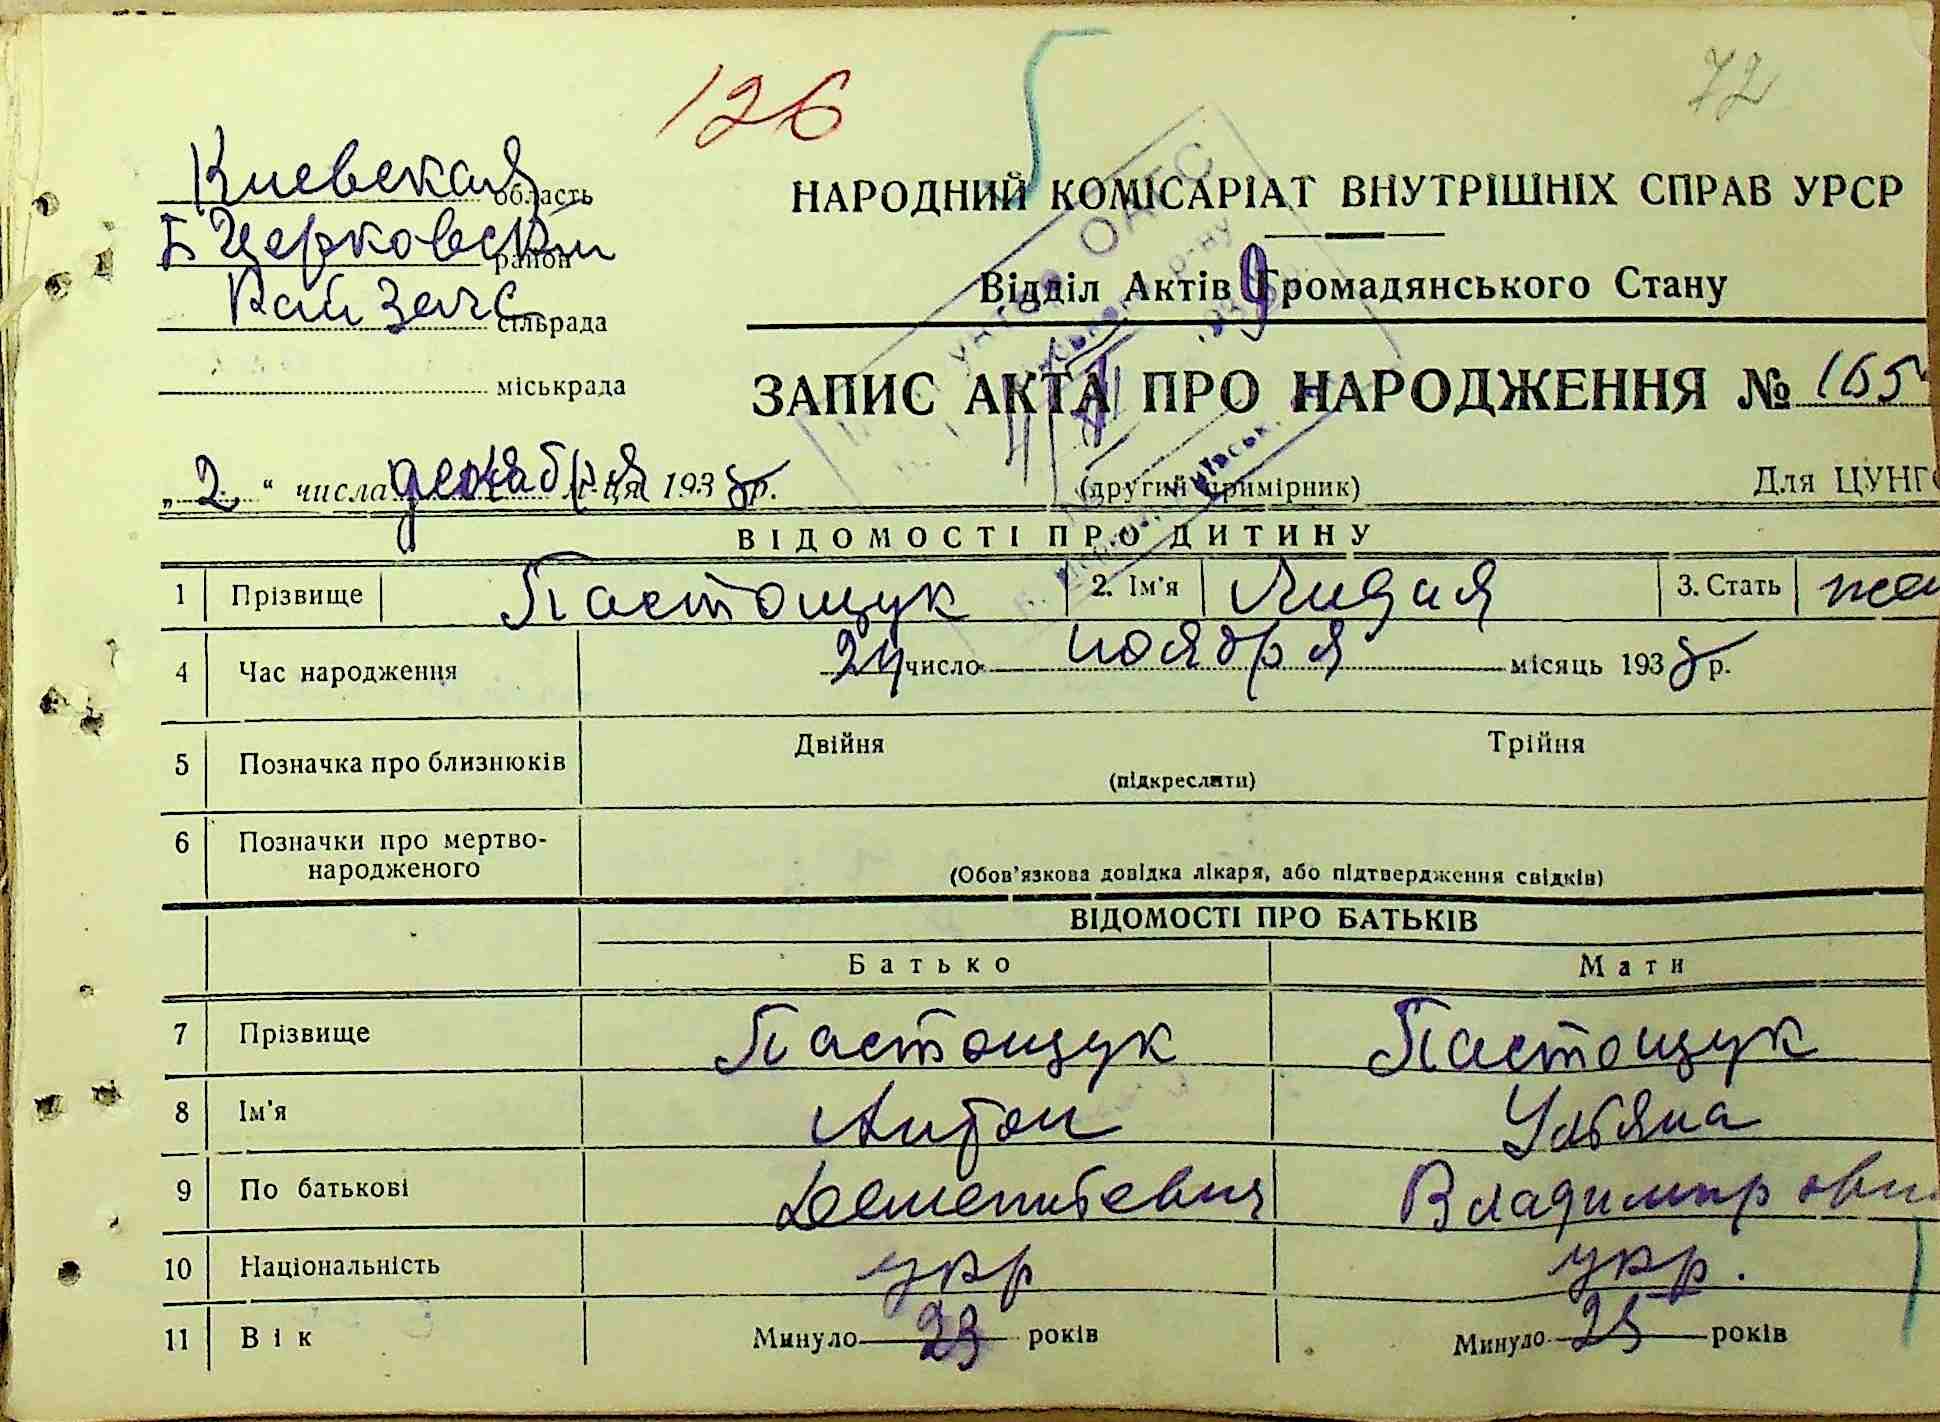 126
72
Киевская область
Б Церковский район
Рай Загс сільрада
міськрада
НАРОДНИЙ КОМІСАРІАТ ВНУТРІШНІХ СПРАВ УРСР
Відділ Актів Громадянського Стану
ЗАПИС АКТА ПРО НАРОДЖЕННЯ №
„2“ числа декабря м-ця 1938 р.
(другий примірник)
Для ЦУНГ
ВІДОМОСТІ ПРО ДИТИНУ
1 Прізвище Пастощук 2. Ім'я Лидия 3. Стать жен
4 Час народження 24 число ноября місяць 1938 р.
5 Позначка про близнюків Двійня Трійня
(підкреслити)
6 Позначки про мертво-
народженого
(Обов'язкова довідка лікаря, або підтвердження свідків)
ВІДОМОСТІ ПРО БАТЬКІВ
Батько Мати
7 Прізвище Пастощук Пастощук
8 Ім'я Антон Ульяна
9 По батькові Дементьевич Владимировн
10 Національність укр укр.
11 Вік Минуло 23 років Минуло 25 років